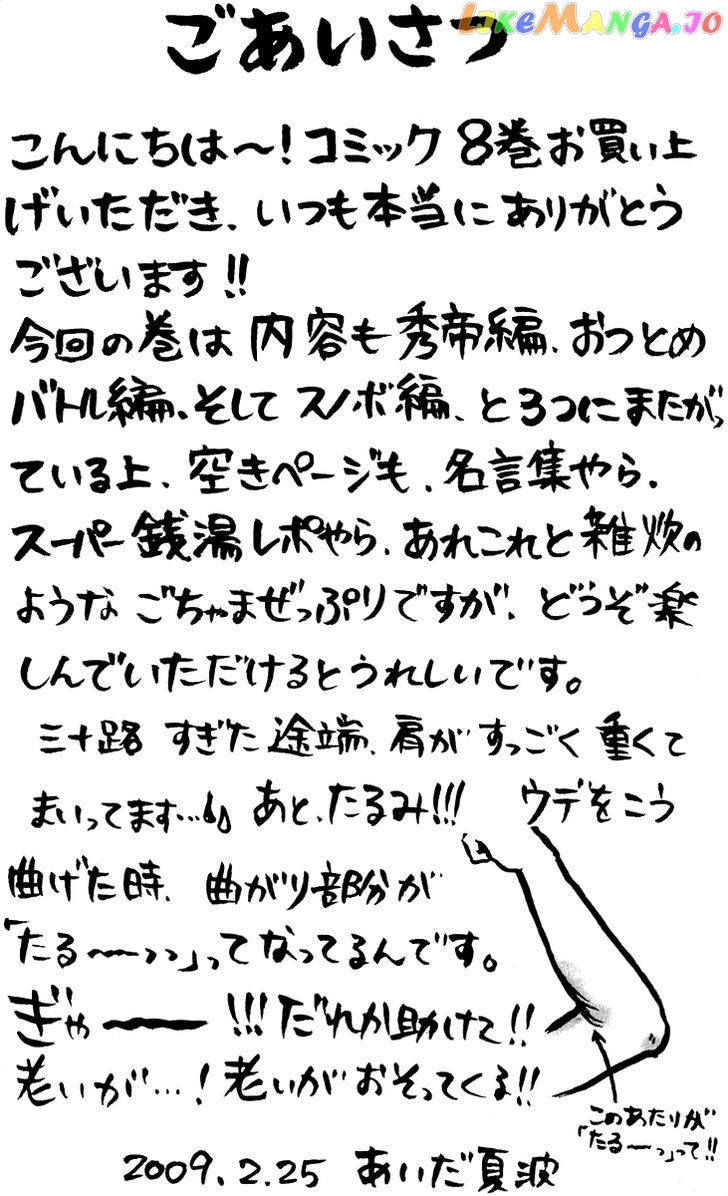 LIKEMANGA.IO
ごあいさつ
こんにちは〜!コミック 8巻お買い上
げいただき、いつも本当にありがとう
ございます!!
今回の巻は 内容も秀帝編、おつとめ
バトル編、そして スノボ編、と3つにまたがっ
ている上、空きページも、名言集やら、
スーパー銭湯レポやら、あれこれと雑炊の
ような ごちゃまぜっぷりですが、どうぞ楽
しんでいただけるとうれしいです。
三十路 すぎた途端、肩が すっごく 重くて
まいってます…
あと、たるみ!!! ウデをこう
曲げた時、曲がり部分が
「たる〜〜っっ」ってなってるんです。
ぎゃーー!!!だれか助けて!!
老いが…!老いがおそってくる!!
このあたりが
「たる〜っ」って!!
2009.2.25 あいだ夏波